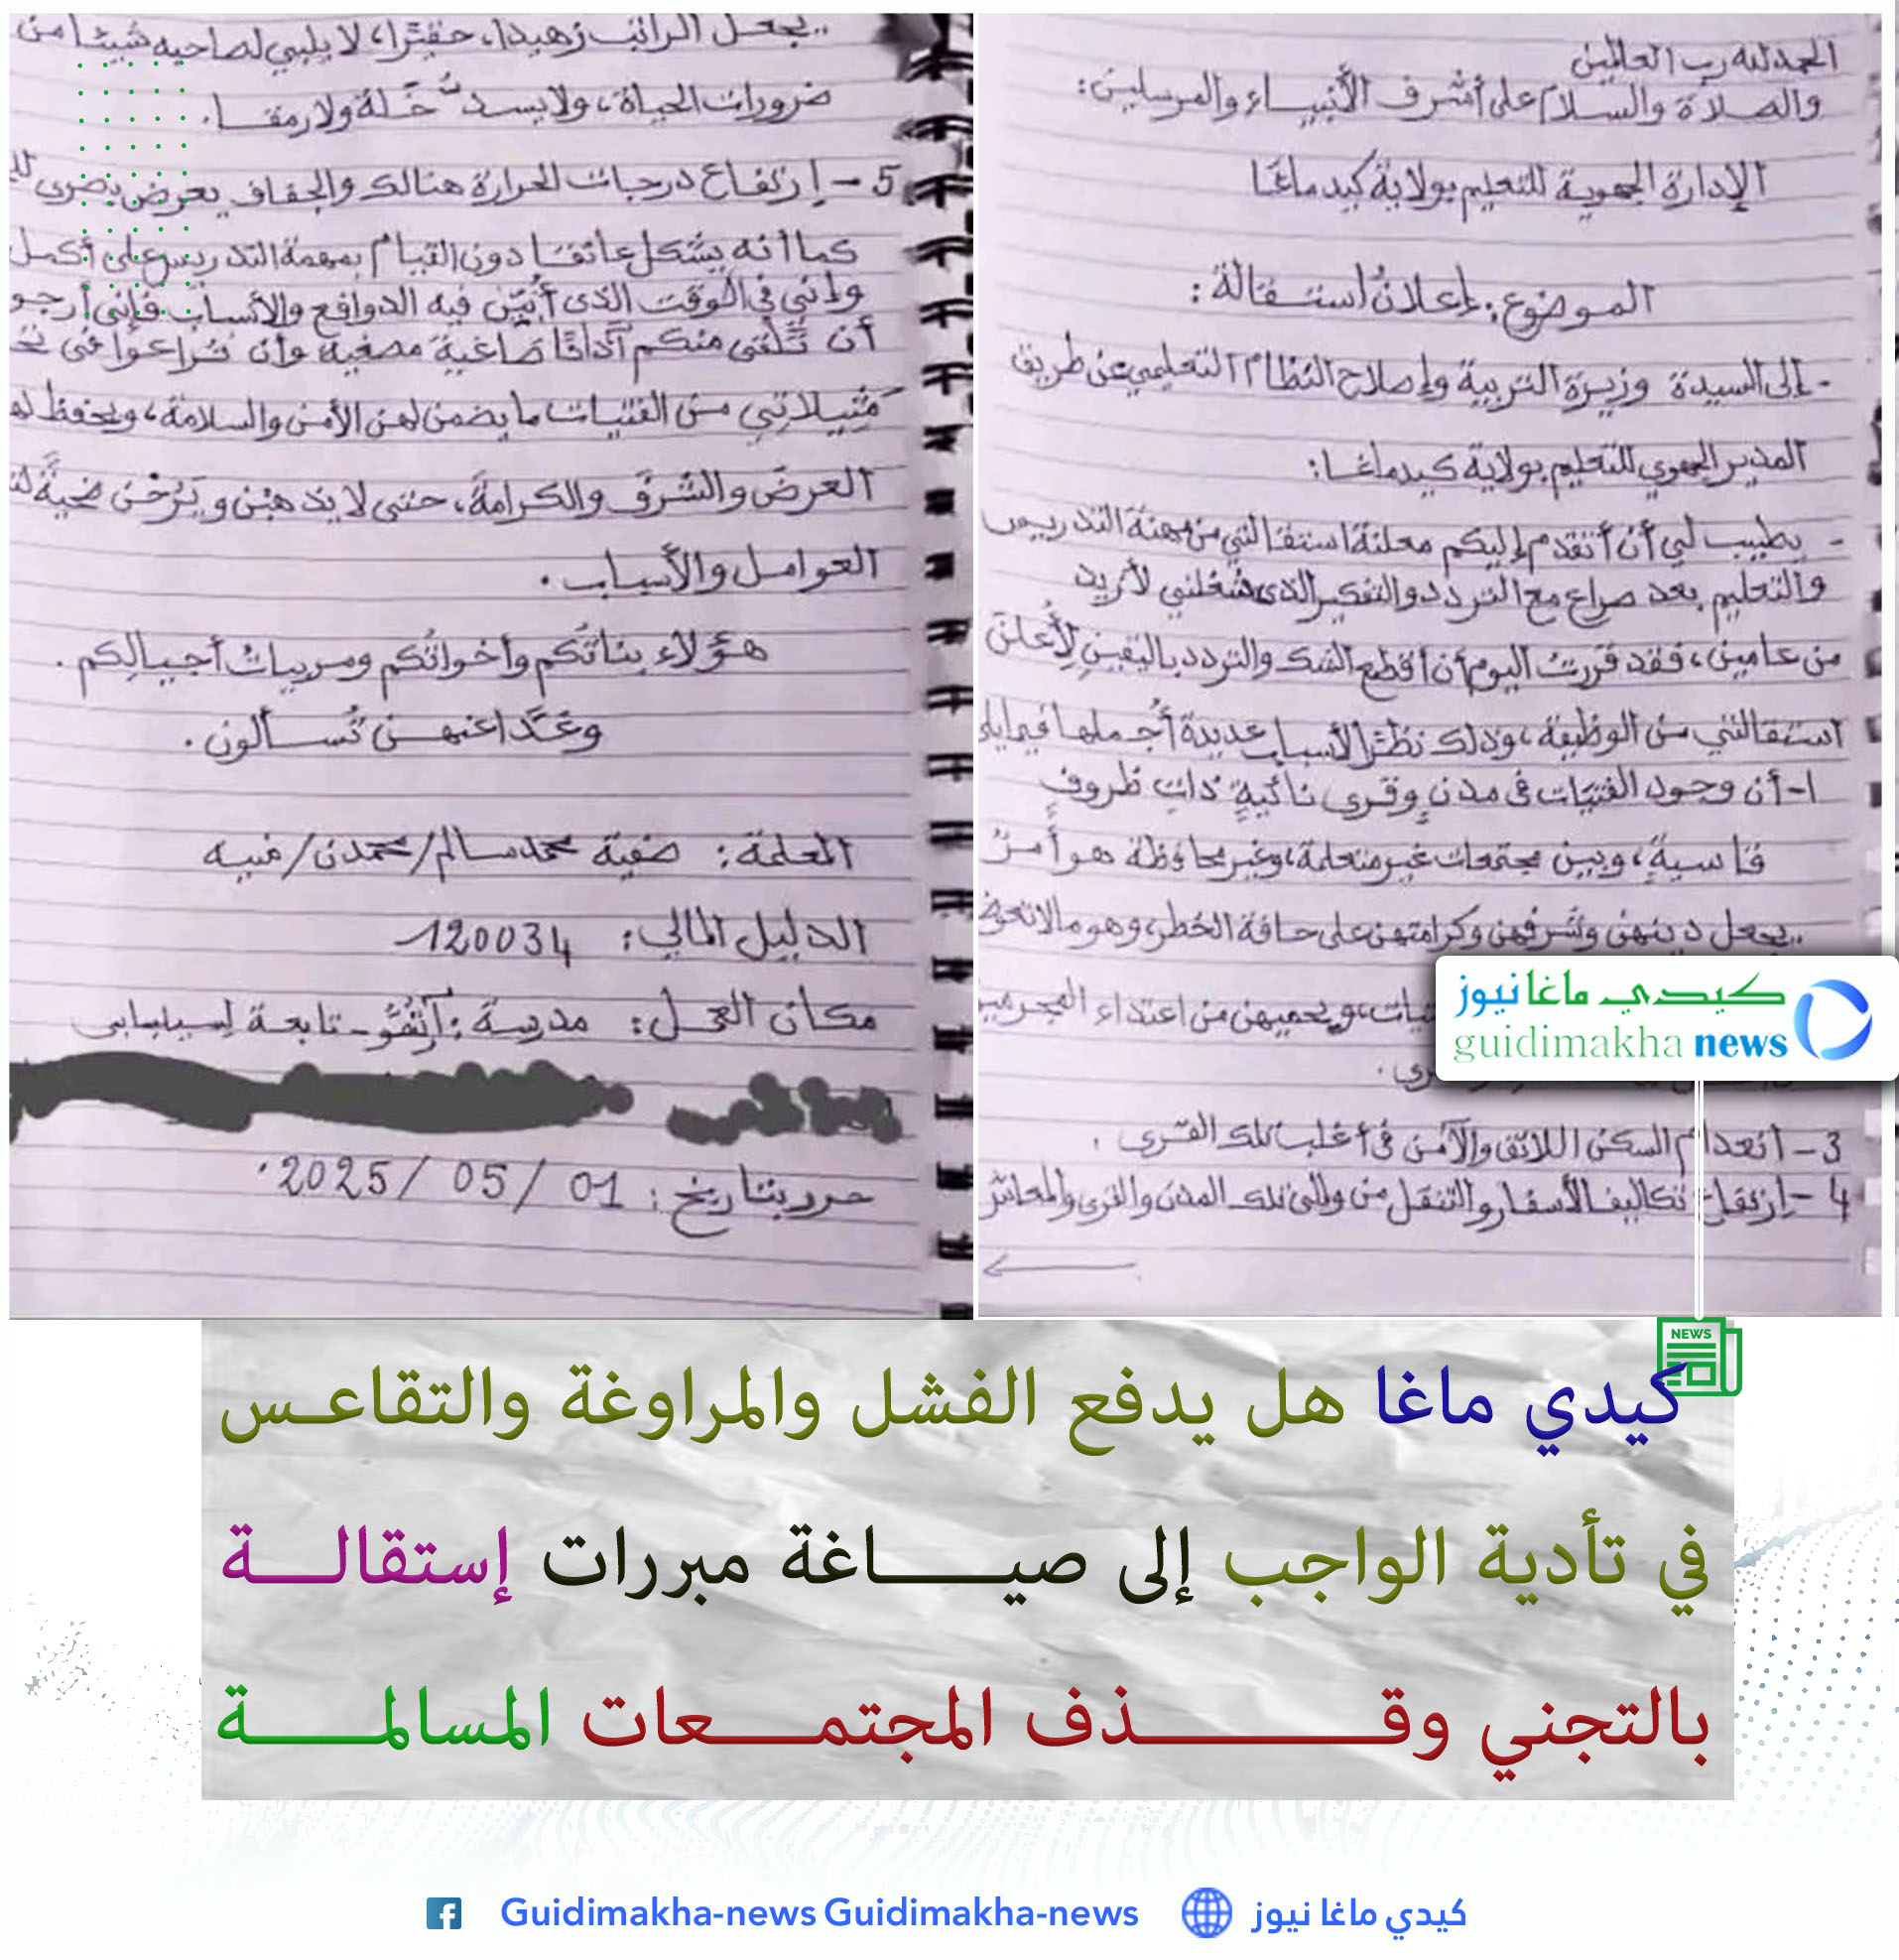 الحمد لله رب العالمين
والصلاة والسلام على أشرف الأنبياء والمرسلين:
الإدارة الجهوية للتعليم بولاية كيدماغا
الموضوع: إعلان استقالة:
- إلى السيدة وزيرة التربية وإصلاح النظام التعليمي عن طريق
المدير الجهوي للتعليم بولاية كيدماغا:
- يطيب لي أن أتقدم إليكم معلنة استقالتي من مهنة التدريس
والتعليم بعد صراع مع التردد والتفكير الذي شغلني لأزيد
من عامين، فقد قررت اليوم أن أقطع الشك والتردد باليقين لأعلن
استقالتي من الوظيفة، وذلك نظرا لأسباب عديدة أجملها فيما يلي
1- أن وجود الفتيات في مدن وقرى نائية ذات ظروف
قاسية، وبين مجتمعات غير متعلمة، وغير محافظة هو أمر
يجعل دينهن وشرفهن وكرامتهن على حافة الخطر، وهو مالا تعوضه
ويحميهن من اعتداء المجرمين
3- انعدام السكن اللائق والآمن في أغلب تلك القرى.
4- ارتفاع تكاليف الأسفار والتنقل من وإلى تلك المدن والقرى والمعاش
..يجعل الراتب زهيدا، حقيرا، لا يلبي لصاحبه شيئا من
ضرورات الحياة، ولا يسد خَلة ولا رمقا.
5- إرتفاع درجات الحرارة هنالك والجفاف يعرض بصري
كما أنه يشكل عائقا دون القيام بمهمة التدريس على أكمل
وإنني في الوقت الذي أُبيّن فيه الدوافع والأسباب فإنني أرجو
أن تلقى منكم آذانا صاغية مصغية وأن تراعوا في
مثيلاتي من الفتيات ما يضمن لهن الأمن والسلامة، ويحفظ لهن
العرض والشرف والكرامة، حتى لا يذهبن ويرُحْن ضحيةً
العوامل والأسباب.
هؤلاء بناتكم وأخواتكم ومربيات أجيالكم.
وغدا عنهن تُسألون.
المعلمة: صفية محمد سالم/محمدن/فنيه
الدليل المالي: 120034
مكان العمل: مدرسة: تابعة لسيلبابي
حرر بتاريخ: 01/05/2025.
كيدي ماغا نيوز
guidimakha news
NEWS
كيدي ماغا هل يدفع الفشل والمراوغة والتقاعس
في تأدية الواجب إلى صياغة مبررات إستقالة
بالتجني وقذف المجتمعات المسالمة
Guidimakha-news Guidimakha-news
كيدي ماغا نيوز